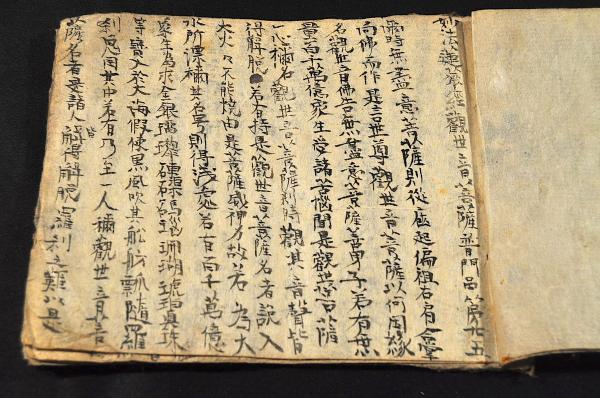 妙法蓮華経觀世音菩薩普門品第廿五
爾時無盡意菩薩則從座起偏袒右肩合掌
向佛而作是言世尊觀世音菩薩以何因緣
名觀世音佛告無盡意菩薩善男子若有無
量百千萬億衆生受諸苦惱聞是觀世音菩薩
一心稱名觀世音菩薩則時觀其音聲皆
得解脱若有持是觀世音菩薩名者設入
大火々不能焼由是菩薩威神力故若為大
水所漂稱其名号則得浅處若有百千萬億
衆生為求金銀瑠璃硨磲碼碯珊瑚琥珀真珠
等寶入於大海假使黒風吹其舩舫飄墮羅
刹鬼国其中若有乃至一人稱觀世音菩
薩名者是諸人皆得解脱羅刹之難以是